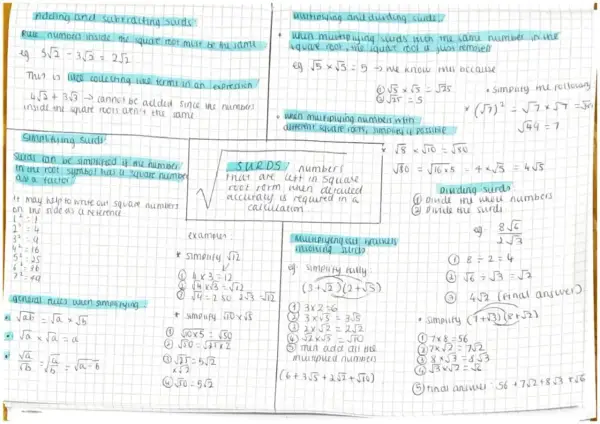 Adding and subtracting surds
Rule: numbers inside the square root must be the same
eg 5√2 - 3√2 = 2√2
This is like collecting like terms in an expression
4√2 + 3√3 → cannot be added since the numbers
inside the square roots aren't the same
Simplifying Surds
Surds can be simplified if the number
in the root symbol has a square number
as a factor
It may help to write out square numbers
on the side as a reference
1² = 1
2² = 4
3² = 9
4² = 16
5² = 25
6² = 36
7² = 49
general rules when simplifying
• √ab = √a × √b
• √a × √a = a
examples
* simplify √12
① 4 × 3 = 12
② √4 × √3 = √12
③ √4 = 2 so 2√3 = √12
* simplify √10 × √5
① √10×5 = √50
② √50 = √25×2
③ √25 = 5√2
× √2
④ √50 = 5√2
SURDS: numbers
that are left in square
root form when detailed
accuracy is required in a
calculation
Multiplying and dividing surds
• when multiplying surds with the same number in the
square root, the square root is just removed
eg √5 × √5 = 5 → we know this because
① √5 × √5 = √25
② √25 = 5
* simplify the following
* (√7)² = √7 × √7 = √49
√49 = 7
• when multiplying numbers with
different square roots, simplify if possible
* √8 × √10 = √80
√80 = √16×5 = 4×√5 = 4√5
Dividing surds
① Divide the whole numbers
② Divide the surds
eg 8√6
2√3
① 8 ÷ 2 = 4
② √6 ÷ √3 = √2
③ 4√2 (final answer)
Multiplying out brackets
involving surds
eg simplify fully
(3+√2)(2+√5)
① 3×2=6
② 3×√5 = 3√5
③ 2×√2 = 2√2
④ √2×√5 = √10
⑤ then add all the
multiplied numbers
(6 + 3√5 + 2√2 + √10)
* simplify (7+√3)(8+√2)
① 7×8 = 56
② 7×√2 = 7√2
③ 8×√3 = 8√3
④ √3×√2 = √6
⑤ final answer: 56 + 7√2 + 8√3 × √6